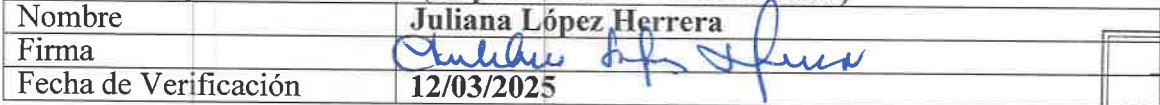 Nombre Juliana López Herrera
Firma
Fecha de Verificación 12/03/2025